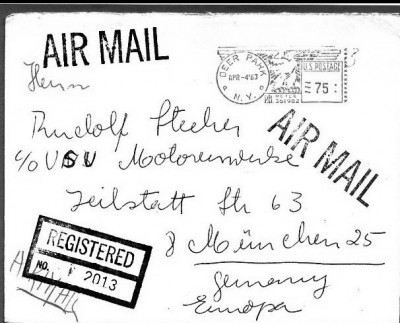 AIR MAIL
DEER PARK
APR-4'63
N.Y.
U.S. POSTAGE
75
Herrn
Rudolf Stecher
c/o USU Motorenwerke
AIR MAIL
Zeilstatt Str 63
8 München 25
Germany
Europa
REGISTERED
NO. 2013